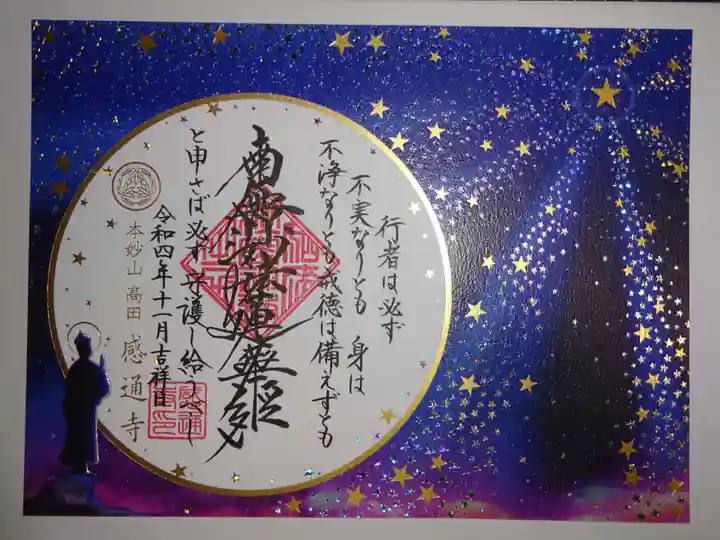 行者は必ず
不実なりとも 身は
不浄なりとも 戒徳は備えずとも
南無妙法蓮華経
と申さば必ず守護し給うべし
令和四年十一月吉祥日
本妙山 高田 感通寺